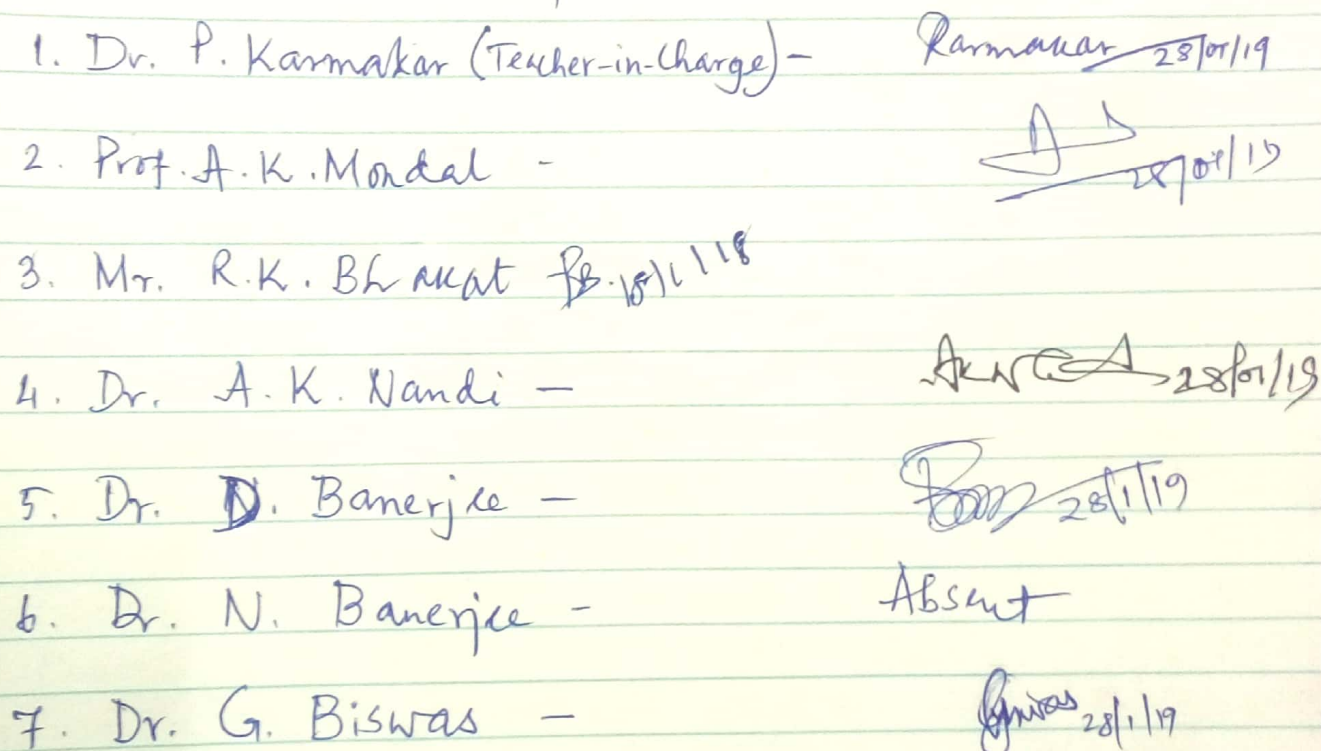 1. Dr. P. Karmakar (Teacher-in-Charge) - Karmakar 28/01/19
2. Prof. A. K. Mondal - 28/01/19
3. Mr. R.K. Bhakat
4. Dr. A. K. Nandi - 28/01/19
5. Dr. D. Banerjee - 28/1/19
6. Dr. N. Banerjee - Absent
7. Dr. G. Biswas - 28/1/19